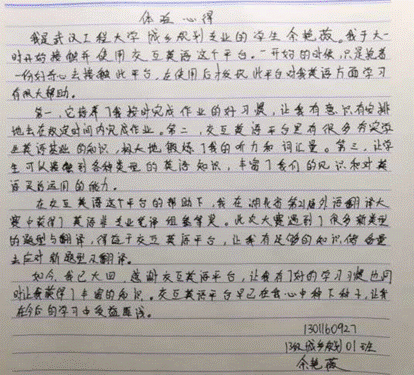 体验心得
我是武汉工程大学城乡规划专业的学生余艳薇。我于大一
开始接触并使用交互英语这个平台。一开始的时候,只是抱着
一份好奇心去接触此平台,在使用后才发现此平台对我英语方面学习
有很大帮助。
第一,它培养了我按时完成作业的好习惯,让我有意识有安排
地去在规定时间内完成作业。第二,交互英语平台里有很多有实
英语基础的知识,极大地锻炼了我的听力和词汇量。第三,让学
生可以接触到各种类型的英语知识,丰富了我们的见识和对英
语灵活运用的能力。
在交互英语这个平台的帮助下,我在湖北省第21届外语翻译大
赛中获得了英语非专业笔译组三等奖。此次大赛遇到了很多新类型
的题型与翻译,得益于交互英语平台,让我有足够的知识储备量
去应对新题型及翻译。
如今,我已大四,感谢交互英语平台,让我有了好的学习习惯也同
时让我获得了丰富的知识。交互英语平台早已在我心中种下种子,让我
在今后的学习中受益匪浅。
1301160927
13级城乡规划01班
余艳薇